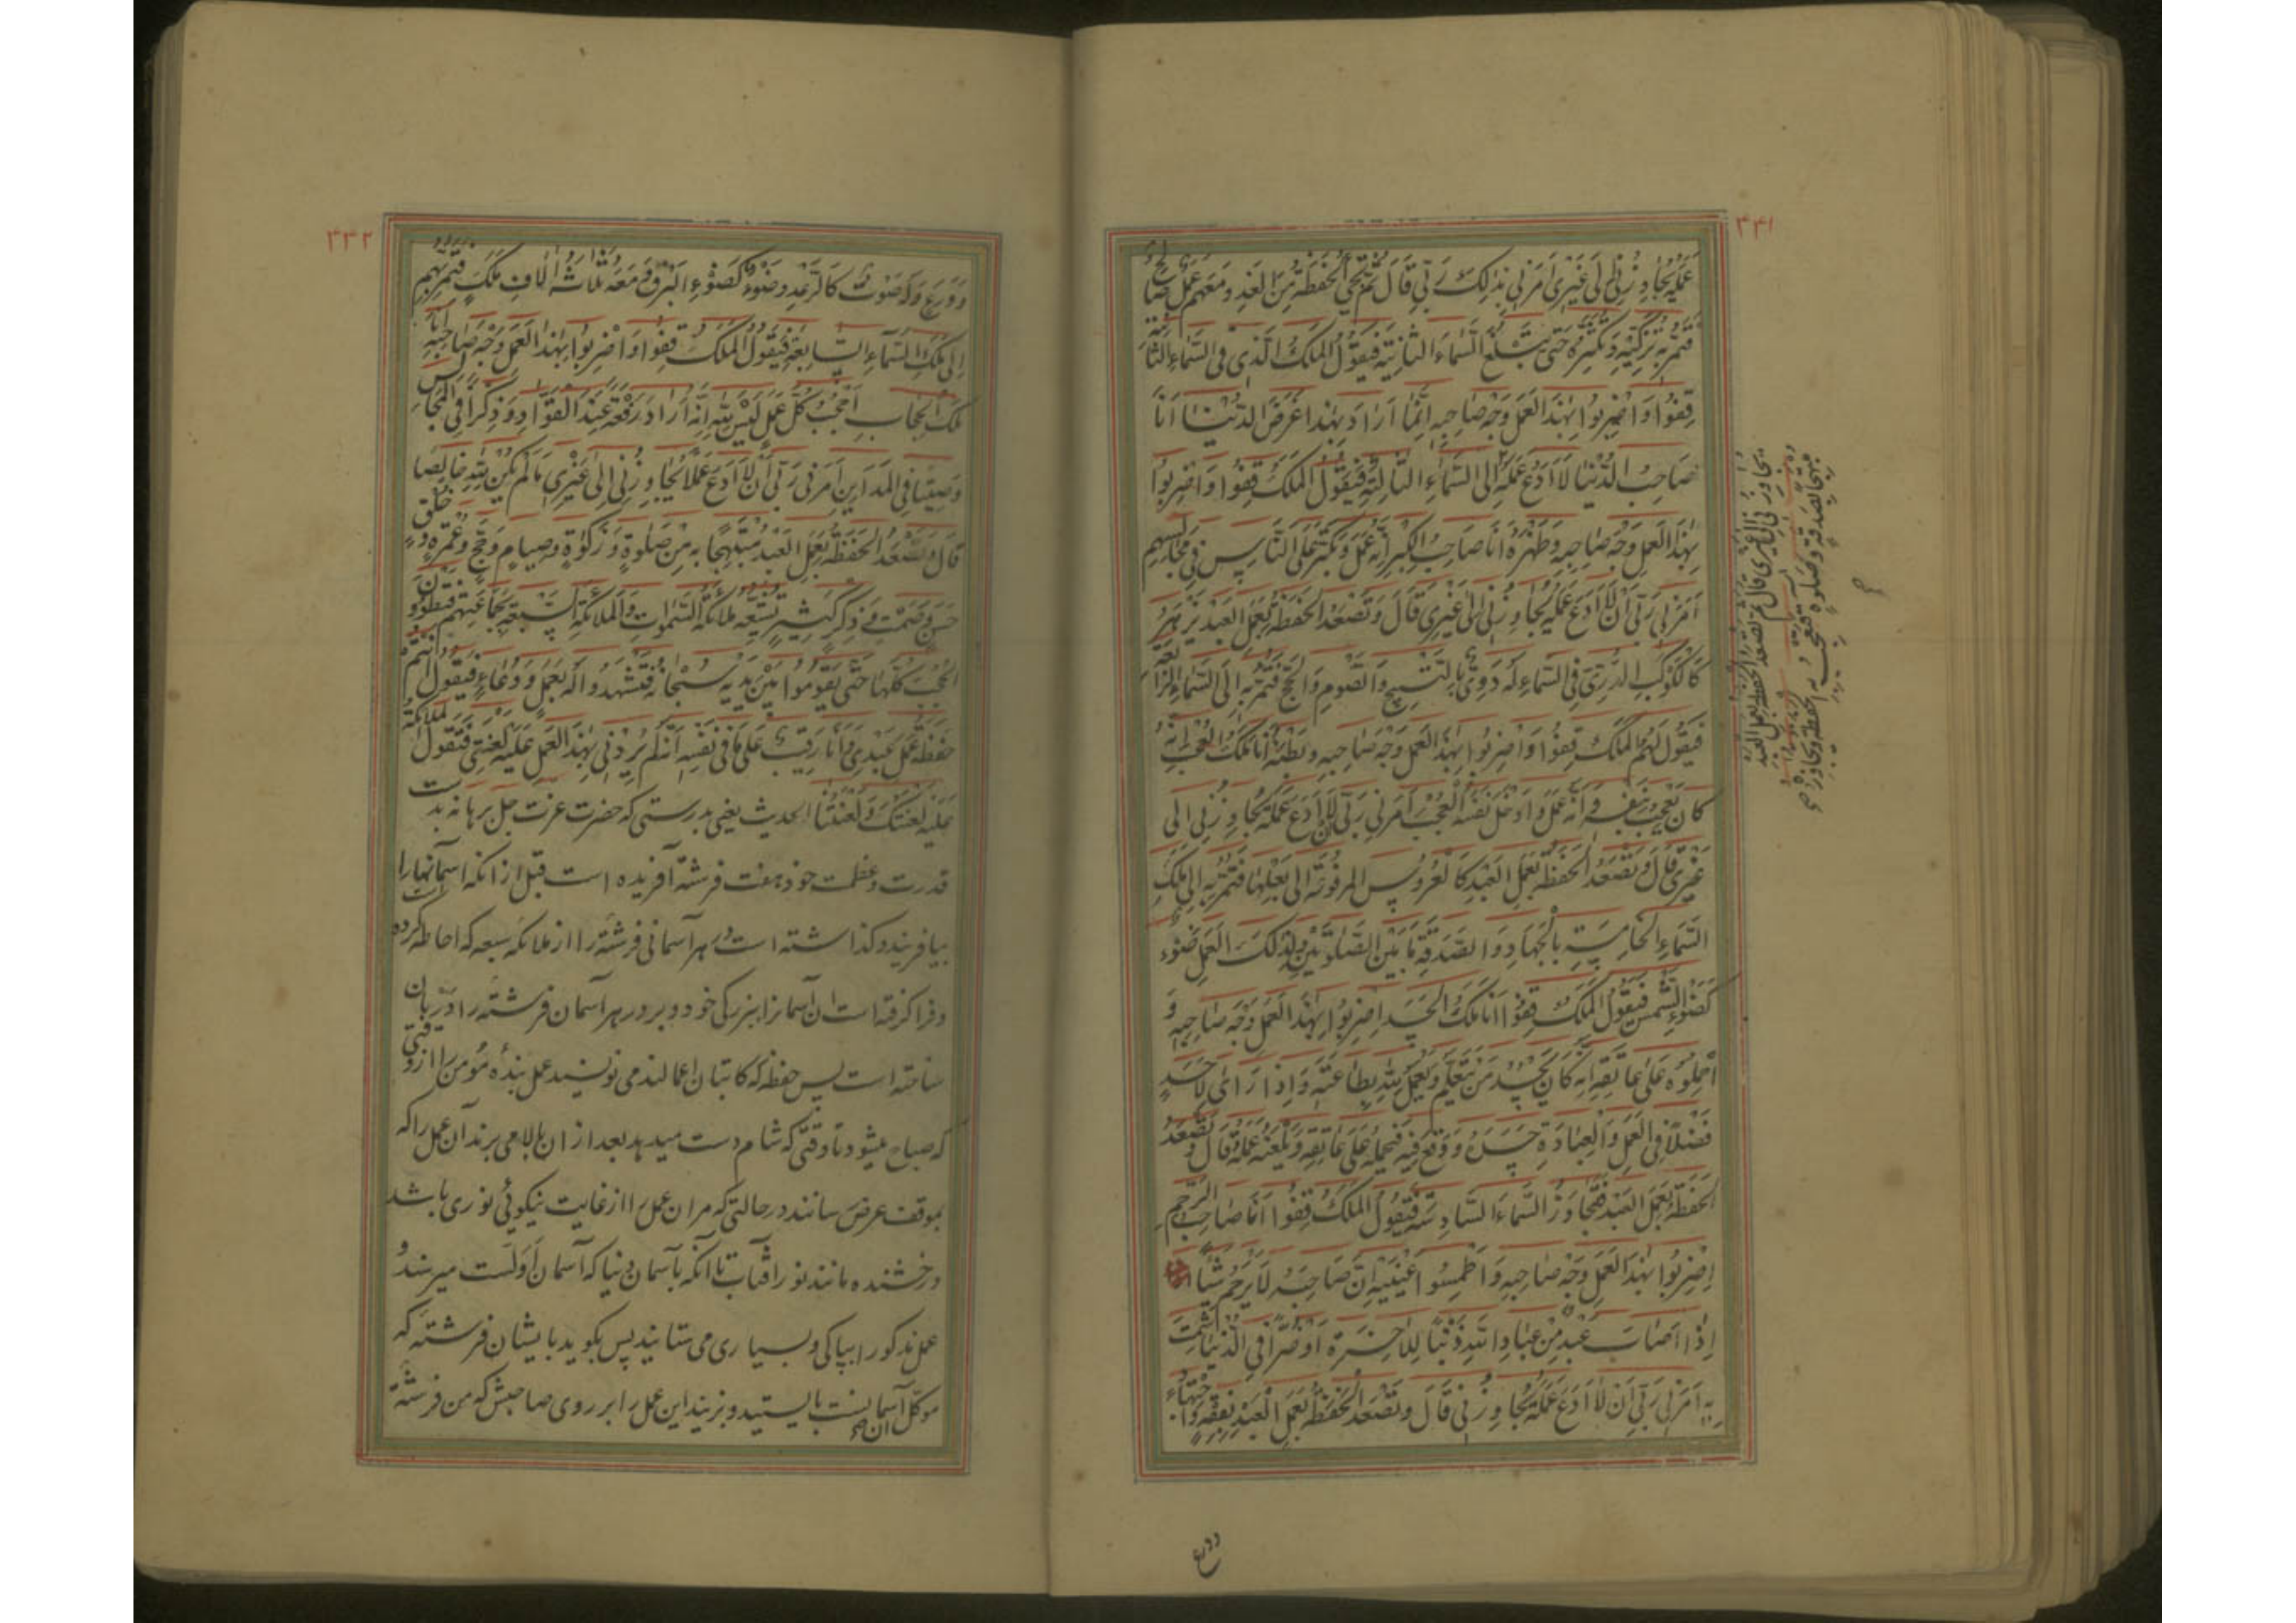 ۴۴۱
عَمَلَهُ يُجَاوِزُنِي إِلَى غَيْرِي أَمَرَنِي بِذَلِكَ رَبِّي قَالَ ثُمَّ تَجِيءُ الْحَفَظَةُ مِنَ الْغَدِ وَمَعَهُمْ عَمَلٌ صَالِحٌ
فَتَمُرُّ بِهِ تُزَكِّيهِ وَتُكَثِّرُهُ حَتَّى تَبْلُغَ السَّمَاءَ الثَّانِيَةَ فَيَقُولُ الْمَلَكُ الَّذِي فِي السَّمَاءِ الثَّانِيَةِ
قِفُوا وَاضْرِبُوا بِهَذَا الْعَمَلِ وَجْهَ صَاحِبِهِ إِنَّمَا أَرَادَ بِهَذَا عَرَضَ الدُّنْيَا أَنَا
صَاحِبُ الدُّنْيَا لَا أَدَعُ عَمَلَهُ إِلَى السَّمَاءِ الثَّالِثَةِ فَيَقُولُ الْمَلَكُ قِفُوا وَاضْرِبُوا
بِهَذَا الْعَمَلِ وَجْهَ صَاحِبِهِ وَظَهْرَهُ أَنَا صَاحِبُ الْكِبْرِ إِنَّهُ عَمِلَ وَتَكَبَّرَ عَلَى النَّاسِ فِي مَجَالِسِهِمْ
أَمَرَنِي رَبِّي أَنْ لَا أَدَعَ عَمَلَهُ يُجَاوِزُنِي إِلَى غَيْرِي قَالَ وَتَصْعَدُ الْحَفَظَةُ بِعَمَلِ الْعَبْدِ يَزْهَرُ
كَالْكَوْكَبِ الدُّرِّيِّ فِي السَّمَاءِ لَهُ دَوِيٌّ بِالتَّسْبِيحِ وَالصَّوْمِ وَالْحَجِّ فَتَمُرُّ بِهِ إِلَى السَّمَاءِ الرَّابِعَةِ
فَيَقُولُ لَهُمُ الْمَلَكُ قِفُوا وَاضْرِبُوا بِهَذَا الْعَمَلِ وَجْهَ صَاحِبِهِ وَبَطْنَهُ أَنَا مَلَكُ الْعُجْبِ إِنَّهُ
كَانَ يُعْجَبُ بِنَفْسِهِ وَأَنَّهُ عَمِلَ وَأَدْخَلَ نَفْسَهُ الْعُجْبَ أَمَرَنِي رَبِّي أَنْ لَا أَدَعَ عَمَلَهُ يُجَاوِزُنِي إِلَى
غَيْرِي قَالَ وَتَصْعَدُ الْحَفَظَةُ بِعَمَلِ الْعَبْدِ كَالْعَرُوسِ الْمَزْفُوفَةِ إِلَى بَعْلِهَا فَتَمُرُّ بِهِ إِلَى مَلَكِ
السَّمَاءِ الْخَامِسَةِ بِالْجِهَادِ وَالصَّدَقَةِ مَا بَيْنَ الصَّلَوتَيْنِ وَلِذَلِكَ الْعَمَلِ ضَوْءٌ
كَضَوْءِ الشَّمْسِ فَيَقُولُ الْمَلَكُ قِفُوا أَنَا مَلَكُ الْحَسَدِ اضْرِبُوا بِهَذَا الْعَمَلِ وَجْهَ صَاحِبِهِ وَ
احْمِلُوهُ عَلَى عَاتِقِهِ إِنَّهُ كَانَ يَحْسُدُ مَنْ يَتَعَلَّمُ وَيَعْمَلُ لِلَّهِ بِطَاعَتِهِ وَإِذَا رَأَى لِأَحَدٍ
فَضْلًا فِي الْعَمَلِ وَالْعِبَادَةِ حَسَدَهُ وَوَقَعَ فِيهِ فَيَحْمِلُهُ عَلَى عَاتِقِهِ وَيَلْعَنُهُ عَمَلُهُ قَالَ وَتَصْعَدُ
الْحَفَظَةُ بِعَمَلِ الْعَبْدِ فَتَجَاوَزُ السَّمَاءَ السَّادِسَةَ فَيَقُولُ الْمَلَكُ قِفُوا أَنَا صَاحِبُ الرَّحْمَةِ
اضْرِبُوا بِهَذَا الْعَمَلِ وَجْهَ صَاحِبِهِ وَاطْمِسُوا عَيْنَيْهِ إِنَّ صَاحِبَهُ لَا يَرْحَمُ شَيْئًا
إِذَا أَصَابَ عَبْدٌ مِنْ عِبَادِ اللَّهِ ذَنْبًا لِلْآخِرَةِ أَوْ ضَرًّا فِي الدُّنْيَا شَمِتَ
بِهِ أَمَرَنِي رَبِّي أَنْ لَا أَدَعَ عَمَلَهُ يُجَاوِزُنِي قَالَ وَتَصْعَدُ الْحَفَظَةُ بِعَمَلِ الْعَبْدِ بِفِقْهٍ وَاجْتِهَادٍ
يجاوزني الى غيري قال ثم تصعد الحفظة بعمل العبد
مبتهجا بصدقة وصلوة فتعجب به الحفظة وتجاوزه
وورع
۴۴۲
وَوَرَعٍ وَلَهُ صَوْتٌ كَالرَّعْدِ وَضَوْءٌ كَضَوْءِ الْبَرْقِ وَمَعَهُ ثَلَاثَةُ آلَافِ مَلَكٍ فَتَمُرُّ بِهِمْ
إِلَى مَلَكِ السَّمَاءِ السَّابِعَةِ فَيَقُولُ الْمَلَكُ قِفُوا وَاضْرِبُوا بِهَذَا الْعَمَلِ وَجْهَ صَاحِبِهِ أَنَا
مَلَكُ الْحِجَابِ أَحْجُبُ كُلَّ عَمَلٍ لَيْسَ لِلَّهِ إِنَّهُ أَرَادَ رِفْعَةً عِنْدَ الْقُوَّادِ وَذِكْرًا فِي الْمَجَالِسِ
وَصِيتًا فِي الْمَدَايِنِ أَمَرَنِي رَبِّي أَنْ لَا أَدَعَ عَمَلًا يُجَاوِزُنِي إِلَى غَيْرِي مَا لَمْ يَكُنْ لِلَّهِ خَالِصًا
قَالَ وَتَصْعَدُ الْحَفَظَةُ بِعَمَلِ الْعَبْدِ مُبْتَهِجًا بِهِ مِنْ صَلوةٍ وَزَكوةٍ وَصِيَامٍ وَحَجٍّ وَعُمْرَةٍ وَخُلُقٍ
حَسَنٍ وَصَمْتٍ وَذِكْرٍ كَثِيرٍ تُشَيِّعُهُ مَلَائِكَةُ السَّمَوَاتِ وَالْمَلَائِكَةُ السَّبْعَةُ بِجَمَاعَتِهِمْ فَيَطَؤُونَ
الْحُجُبَ كُلَّهَا حَتَّى يَقُومُوا بَيْنَ يَدَيْهِ سُبْحَانَهُ فَتَشْهَدُوا لَهُ بِعَمَلٍ وَدُعَاءٍ فَيَقُولُ أَنْتُمْ
حَفَظَةُ عَمَلِ عَبْدِي وَأَنَا رَقِيبٌ عَلَى مَا فِي نَفْسِهِ إِنَّهُ لَمْ يُرِدْنِي بِهَذَا الْعَمَلِ عَلَيْهِ لَعْنَتِي فَتَقُولُ الْمَلَائِكَةُ
عَلَيْهِ لَعْنَتُكَ وَلَعْنَتُنَا الحدیث یعنی بدرستی که حضرت عزت جل برهانه بدست
قدرت وعظمت خود هفت فرشته آفریده است قبل از انکه آسمانها را
بیافریند وکذاشته است در هر آسمانی فرشته را از ملائکه سبعه که احاطه کرده است
وفرا کرفته است ان آسمانرا ببزرکی خود وبر در هر آسمان فرشته را دربان
ساخته است پس حفظه که کاتبان اعمالند می نویسند عمل بندهٔ مؤمن را از وقتی
که صباح میشود تا وقتی که شام دست میدهد بعد از ان بالا می برند آن عمل را که
بموقف عرض رسانند در حالتی که مر ان عمل را از غایت نیکوئی نوری باشد
درخشنده مانند نور آفتاب تا آنکه بآسمان دنیا که آسمان اولست میرسند و
عمل مذکور را بپاکی وبسیاری می ستایند پس بکوید بایشان فرشته که
موکل آن آسمانست بایستید وبزنید این عمل را بر روی صاحبش که من فرشته